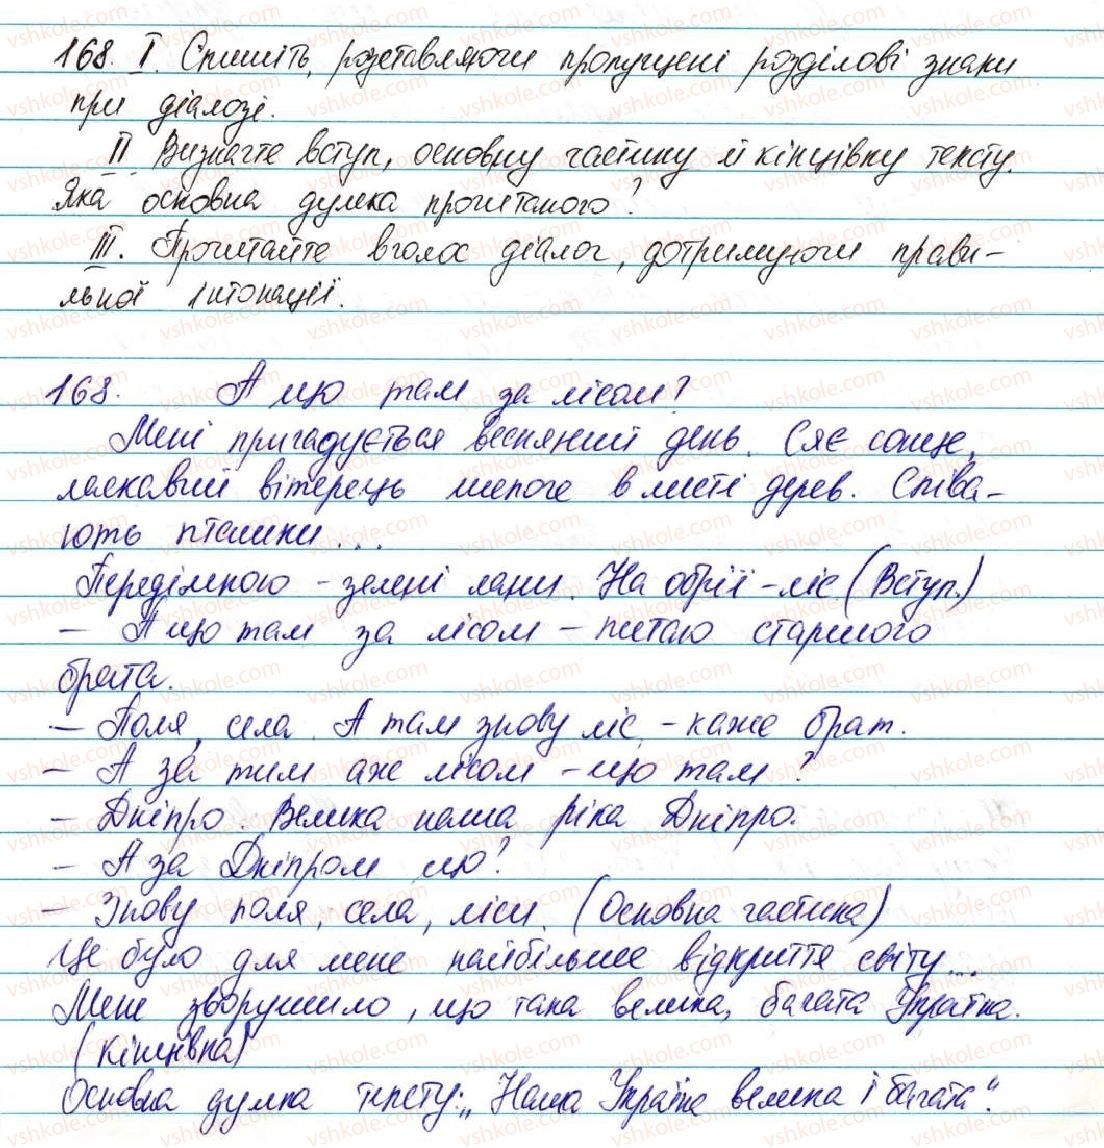 168. I. Спишіть, розставляючи пропущені розділові знаки
при діалозі.
II Визначте вступ, основну частину й кінцівку тексту.
Яка основна думка прочитаного?
III. Прочитайте вголос діалог, дотримуючи прави-
льної інтонації.
168. А що там за лісом?
Мені пригадується весняний день. Сяє сонце,
ласкавий вітерець шепоче в листі дерев. Співа-
ють пташки...
Переді мною - зелені лани. На обрії - ліс (Вступ.)
— А що там за лісом — питаю старшого
брата.
— Поля, села. А там знову ліс, - каже брат.
— А за тим аже лісом - що там?
— Дніпро. Велика наша ріка Дніпро.
— А за Дніпром що?
— Знову поля, села, ліси. (Основна частина)
Це було для мене найбільше відкриття світу...
Мене зворушило, що така велика, багата Україна.
(Кінцівка)
Основна думка тексту: „Наша Україна велика і багата".